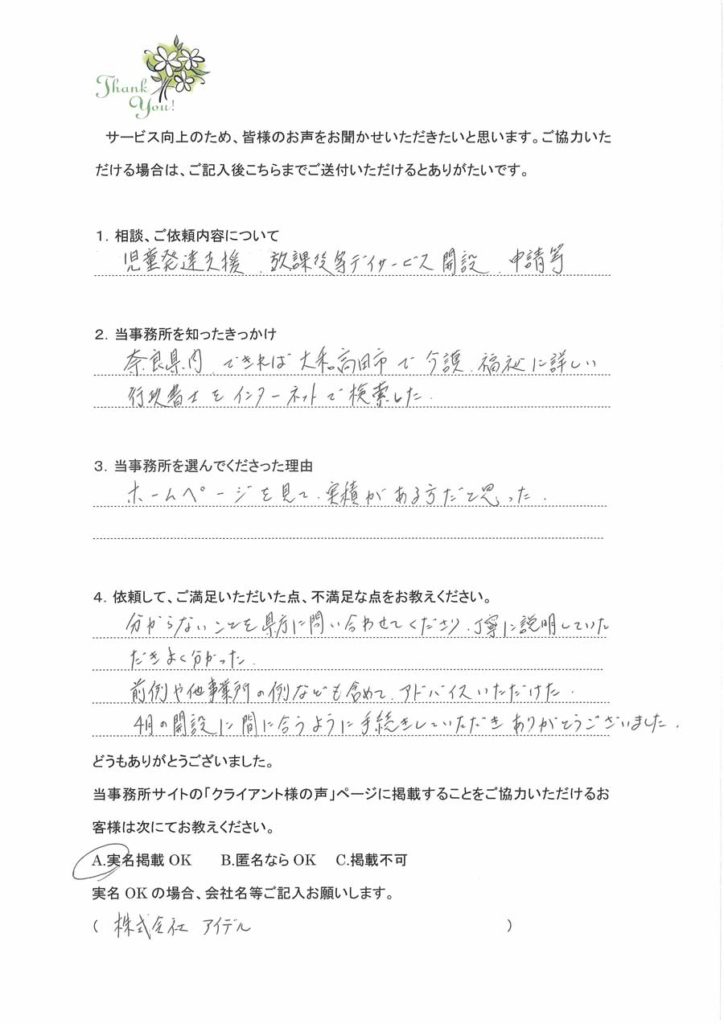 Thank
You!
サービス向上のため、皆様のお声をお聞かせいただきたいと思います。ご協力いた
だける場合は、ご記入後こちらまでご送付いただけるとありがたいです。
1. 相談、ご依頼内容について
児童発達支援、放課後等デイサービス開設、申請等
2. 当事務所を知ったきっかけ
奈良県内、できれば大和高田市で介護、福祉に詳しい
行政書士をインターネットで検索した.
3. 当事務所を選んでくださった理由
ホームページを見て、実積がある方だと思った.
4. 依頼して、ご満足いただいた点、不満足な点をお教えください。
分からないことを県庁に問い合わせてくださり、丁寧に説明していた
だきよく分かった.
前例や他事業所の例なども含めて、アドバイスいただけた.
4月の開設に間に合うように手続きしていただきありがとうございました.
どうもありがとうございました。
当事務所サイトの「クライアント様の声」ページに掲載することをご協力いただけるお
客様は次にてお教えください。
A.実名掲載 OK B.匿名なら OK C.掲載不可
実名 OK の場合、会社名等ご記入お願いします。
( 株式会社 アイデル )